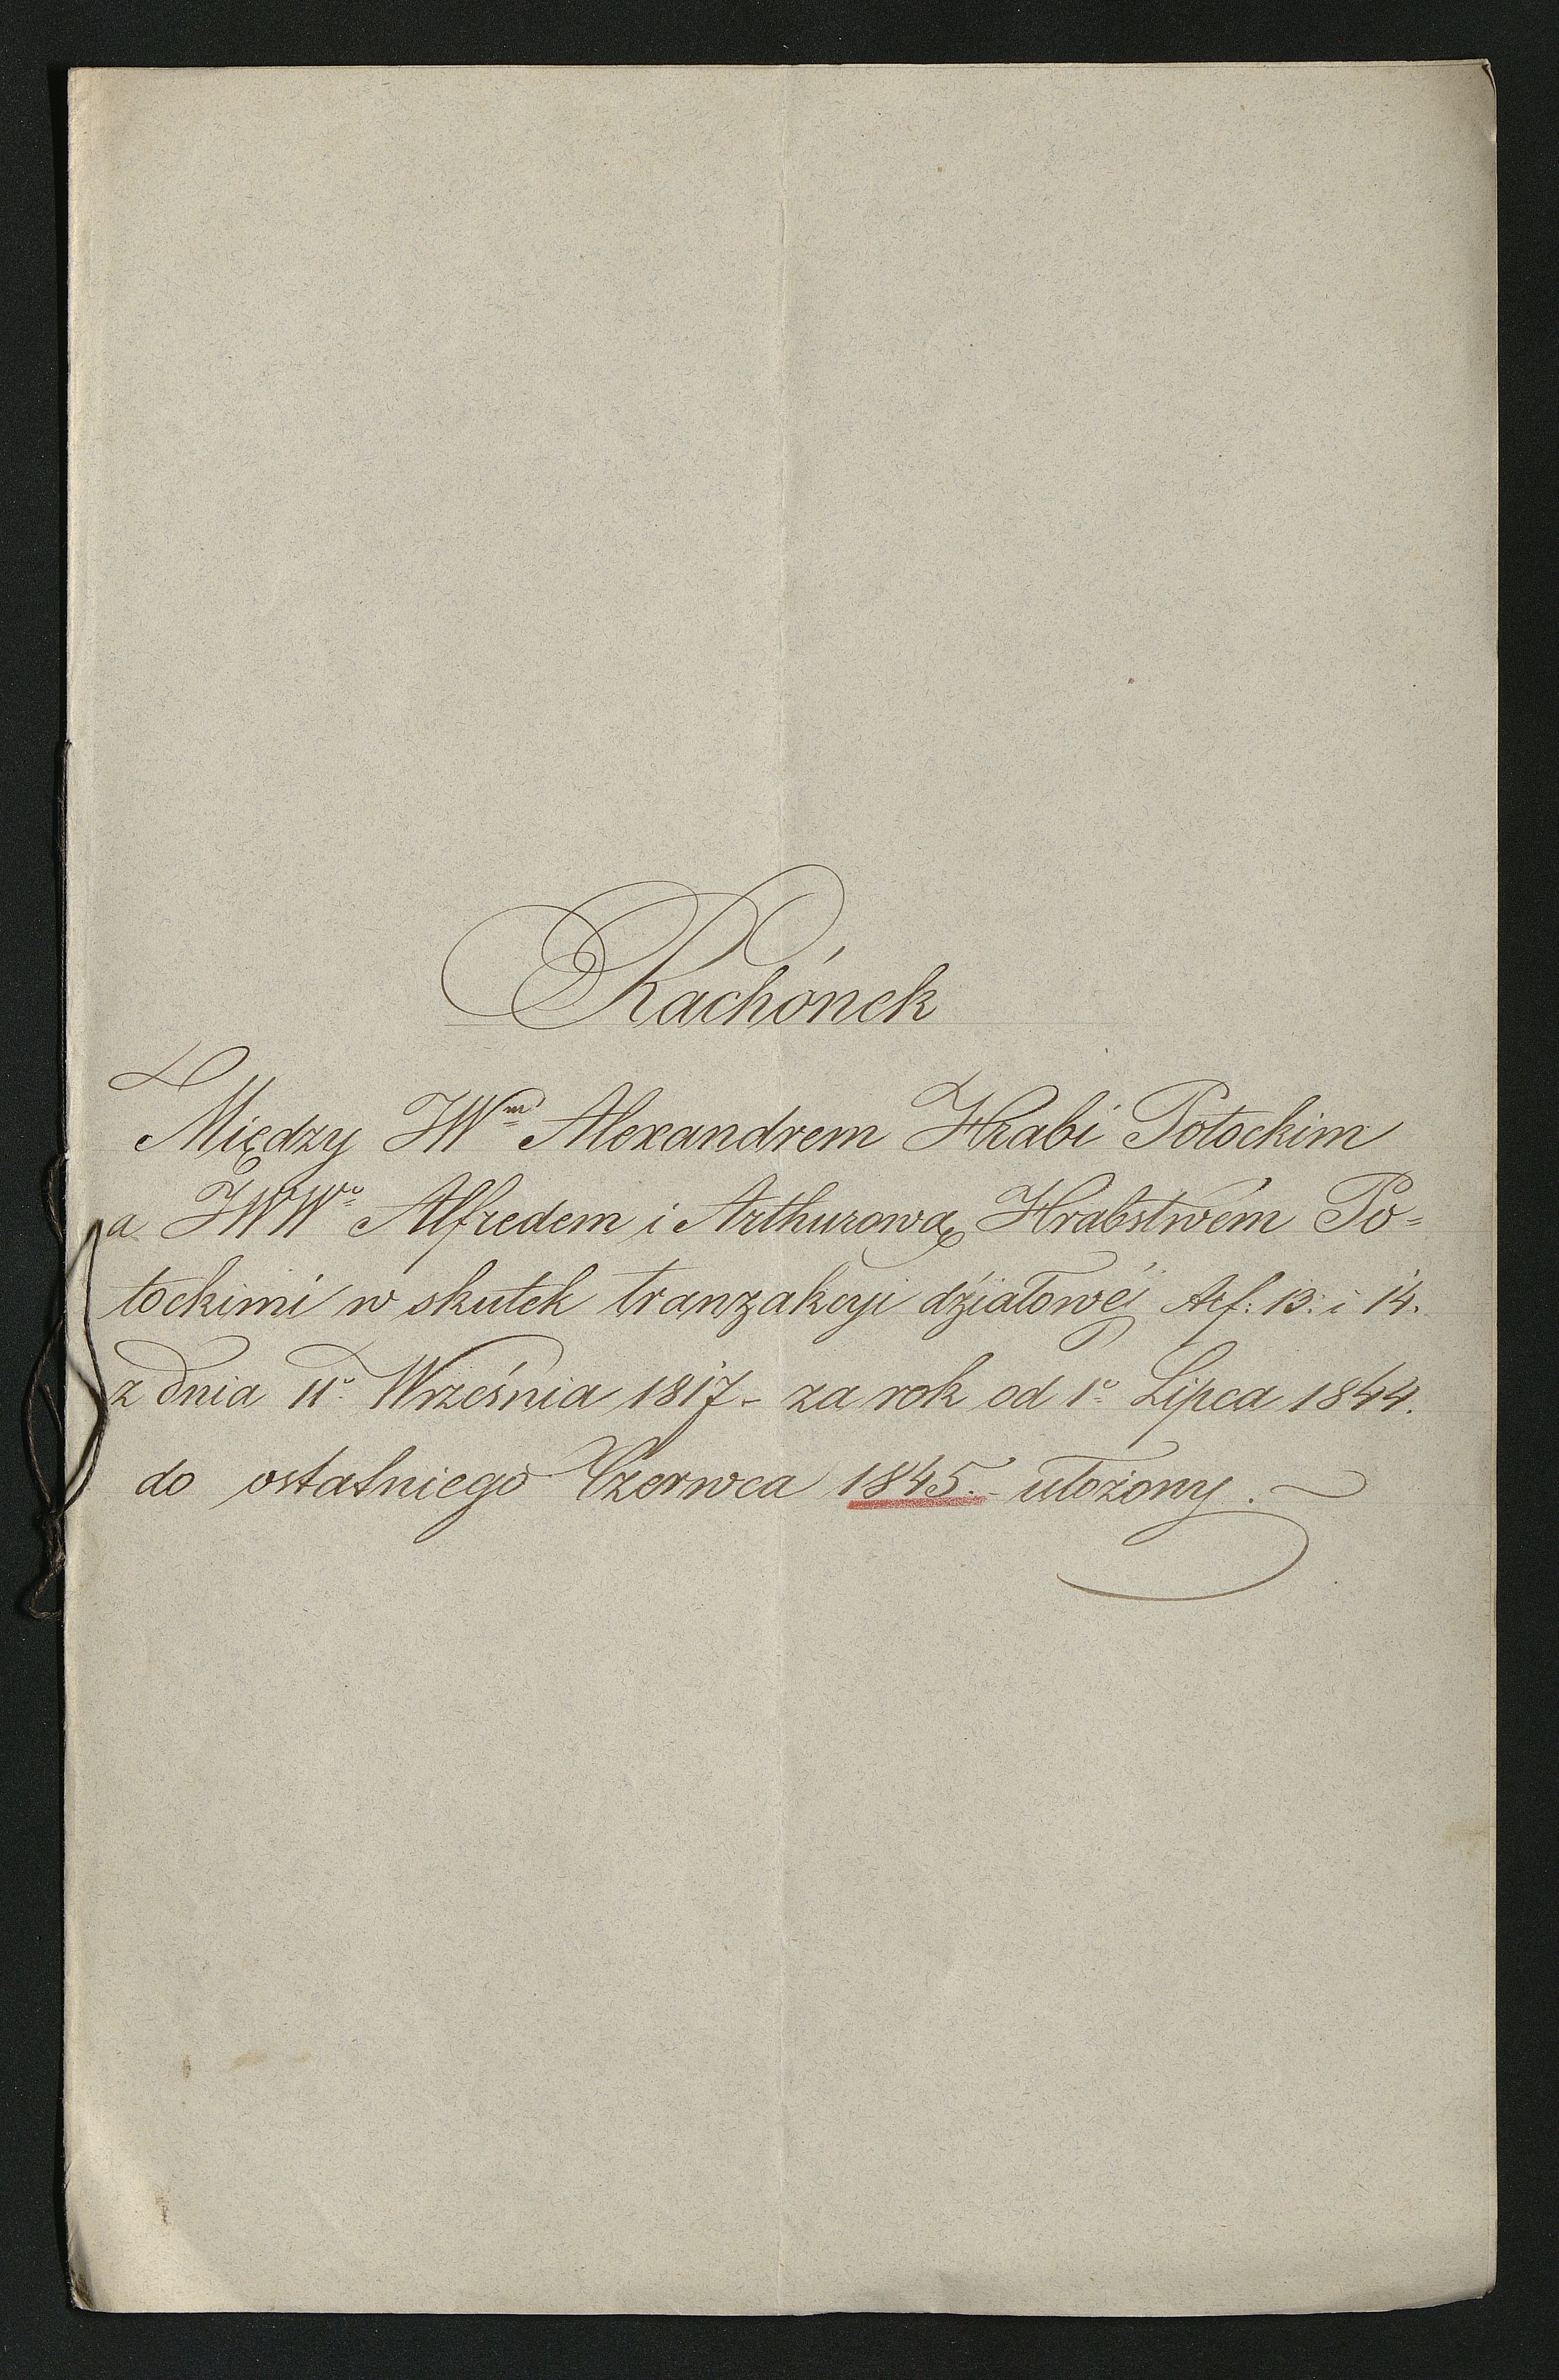 Rachónek
Między JWm Alexandrem Hrabi Potockim
a JWWo Alfredem i Arthurową Hrabstwem Po=
tockimi w skutek tranzakcyi działowéj Art: 13. i 14.
z dnia 11o Września 1817 - za rok od 1o Lipca 1844.
do ostatniego Czerwca 1845. - ułożony. ~